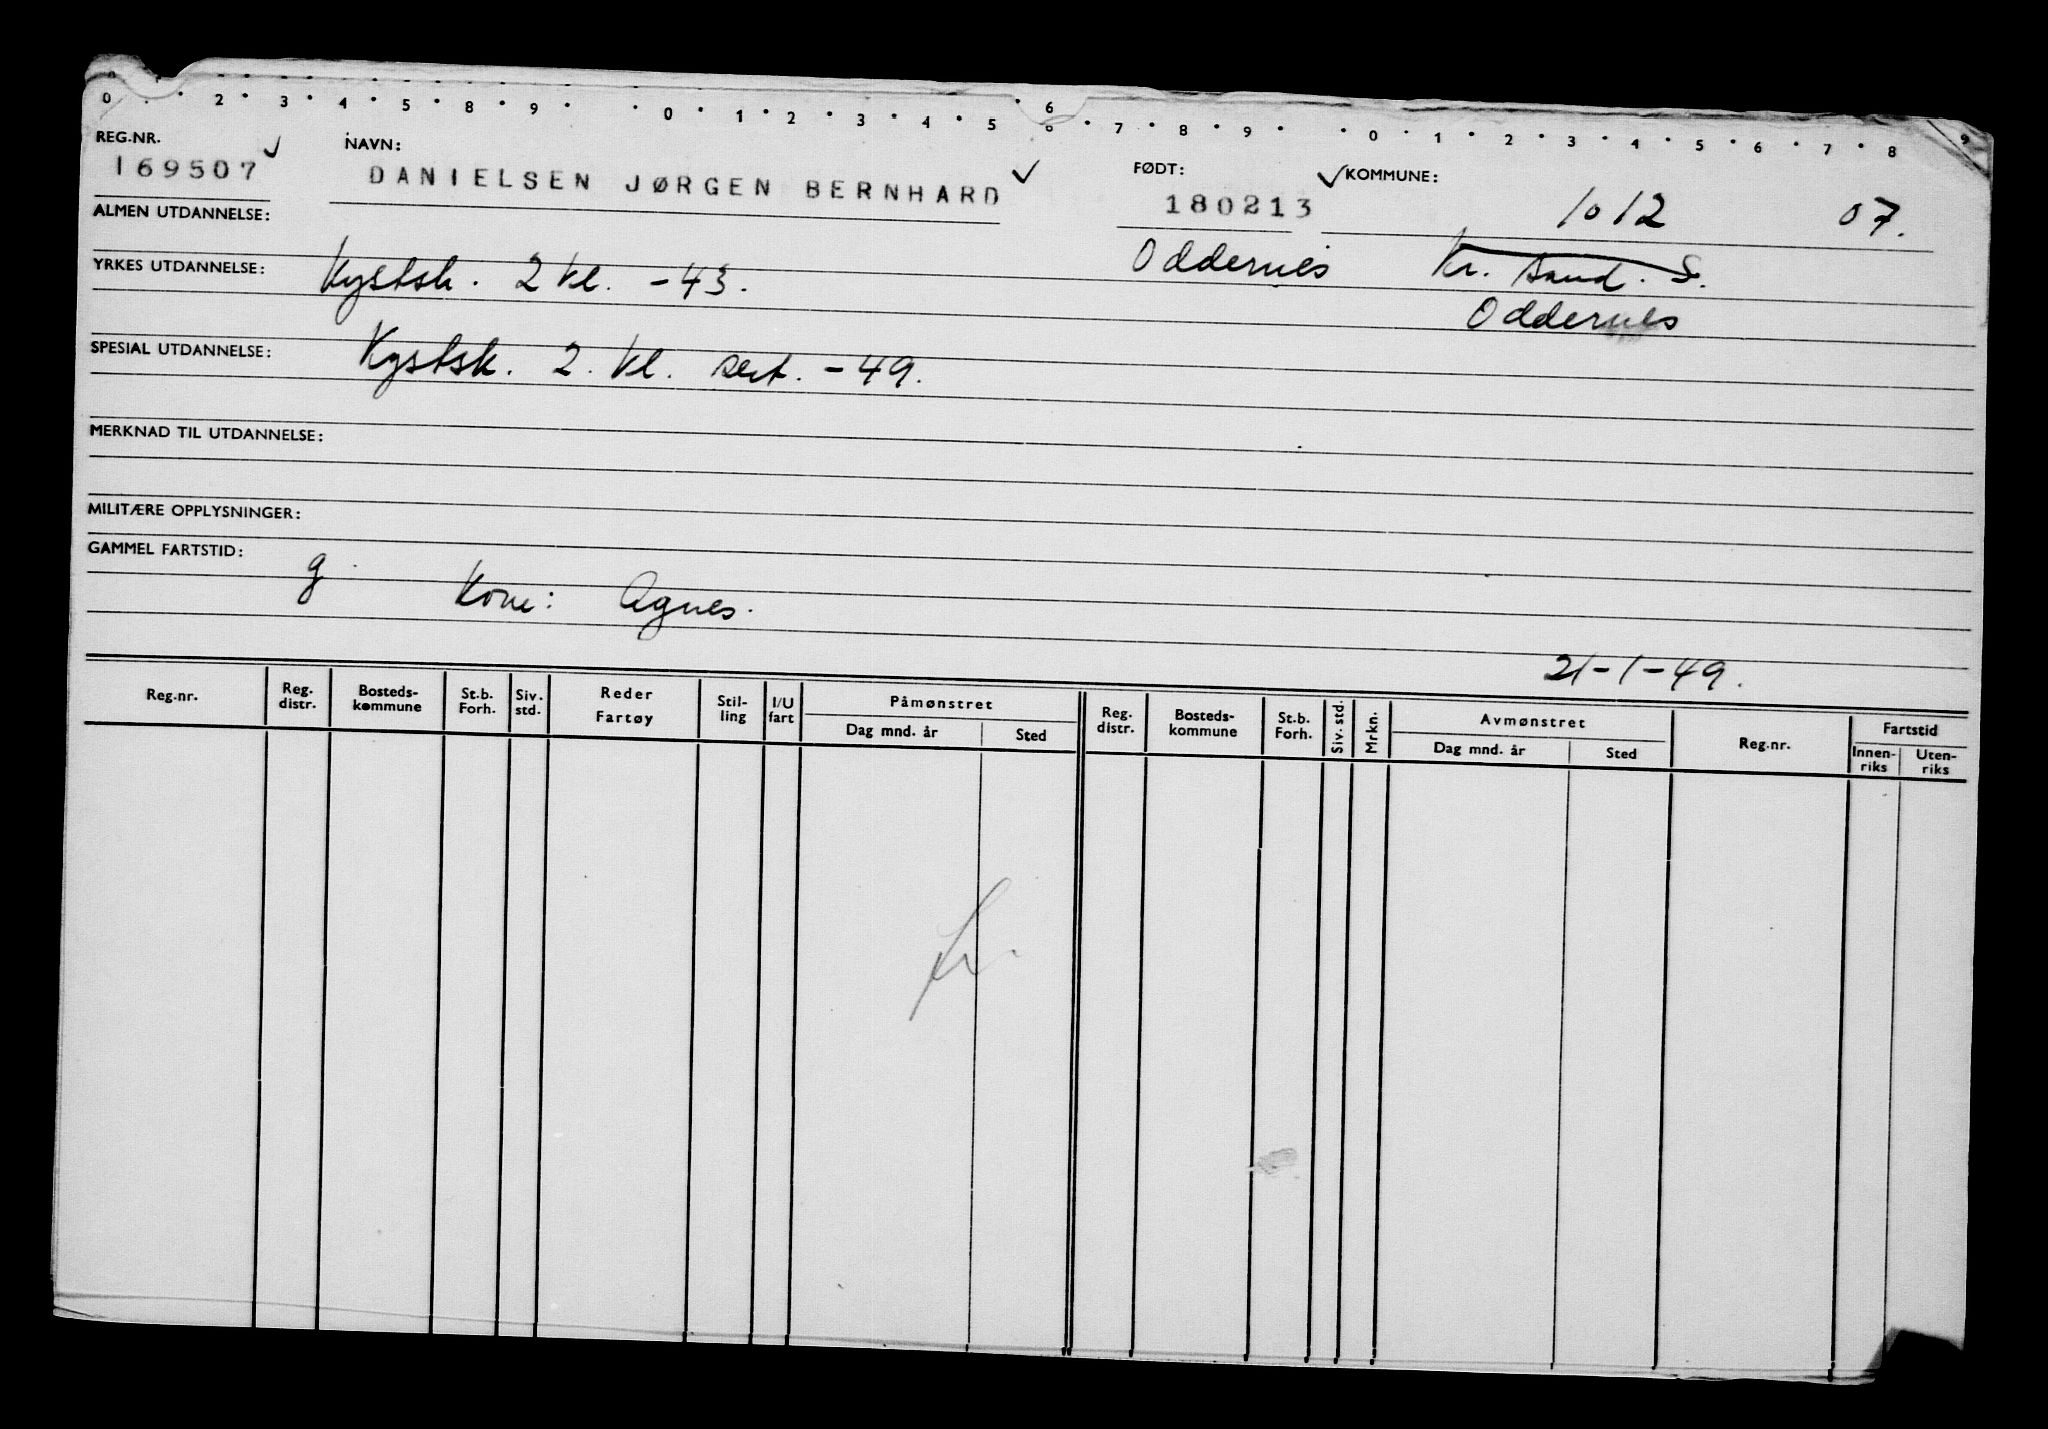 0 2 3 4 5 8 9 0 1 2 3 4 5 6 7 8 9 0 1 2 3 4 5 6 7 8 9
REG.NR. NAVN: FØDT: KOMMUNE:
169507 DANIELSEN JØRGEN BERNHARD 180213 1012 07.
ALMEN UTDANNELSE: Oddernes Kr. sand. S.
YRKES UTDANNELSE: Kystsk. 2 kl. -43. Oddernes
SPESIAL UTDANNELSE: Kystsk. 2. kl. sert. -49.
MERKNAD TIL UTDANNELSE:
MILITÆRE OPPLYSNINGER:
GAMMEL FARTSTID:
g Kone: Agnes.
21-1-49.
Reg.nr. Reg. distr. Bosteds- kommune St.b. Forh. Siv. std. Reder Fartøy Stil- ling I/U fart Påmønstret Dag mnd. år Sted Reg. distr. Bosteds- kommune St.b. Forh. Siv. std. Mrkn. Avmønstret Dag mnd. år Sted Reg.nr. Fartstid Innen- riks Uten- riks